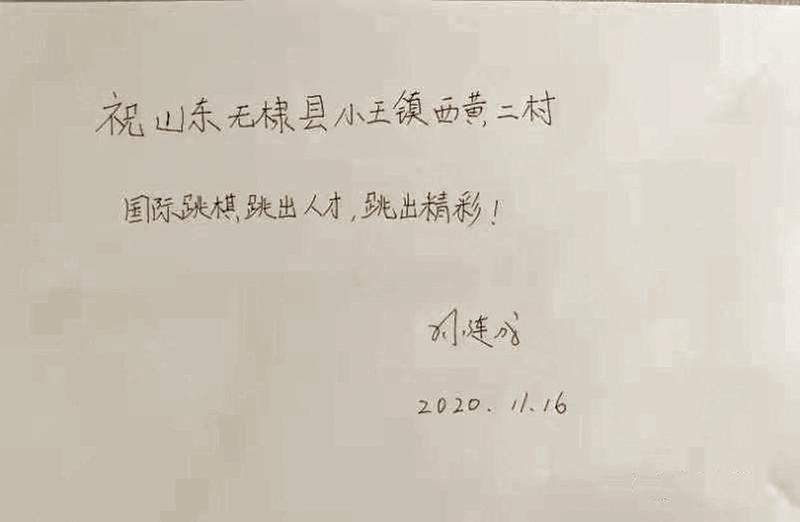 祝山东无棣县小王镇西黄二村
国际跳棋,跳出人才,跳出精彩!
刘连
2020.11.16